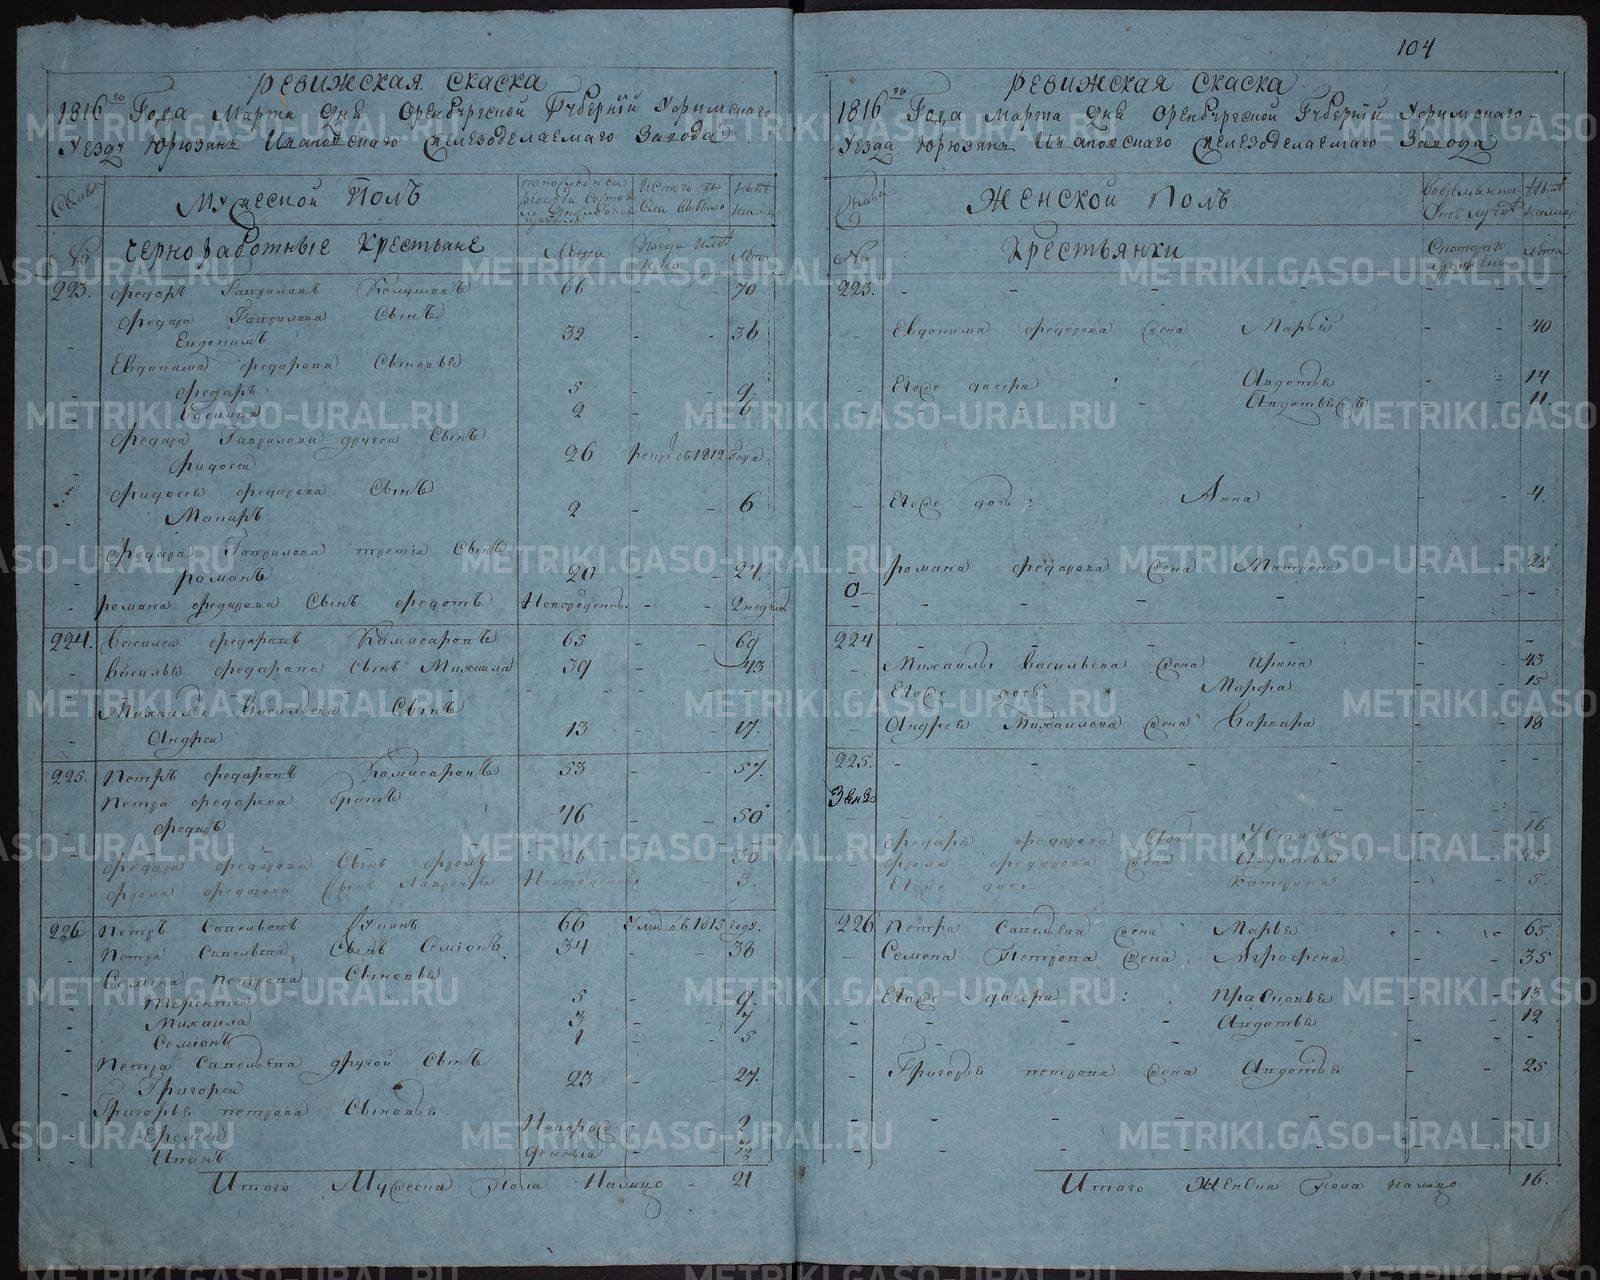 104
Ревижская скаска
1816го Года Марта дня Оренбургской Губернїи Уфимского
Уезду Юрюзанъ Ивановского Железоделаемаго Завода
Семьи
Мужеской Полъ
Ныне
№
Чернорабочные Крестьяне
Лета
Лета
223. Федаръ Гавриловъ 66 - - 70
Федара Гаврилова Сынъ
Евдокимъ 32 - - 36
Евдокима Федарова Сыновья
Федаръ 5 - - 9.
Василей 2 - - 6
Федара Гаврилова другой Сынъ
Фидосеи 26 1812 Года
Фидосея Федарова Сынъ
Макаръ 2 - - 6
Федара Гаврилова третiи Сынъ
романъ 20 - - 24.
романа Федарова Сынъ Федотъ Новорожден. - - 2 недели
224. Василеи Федаровъ Комисаровъ 65 - - 69
Василья Федарова Сынъ Михаила 39 - - 43
Михаилы Васильева Сынъ
Андреи 13 - - 17.
225. Петръ Федаровъ Комисаровъ 53 - - 57.
Петра Федарова братъ
Федаръ 46 - - 50
Федара Федарова Сынъ Фролъ 26 - - 30
Фрола Федарова Сынъ Лаврентеи Новорожденны - - 3.
226 Петръ Савельевъ Лупинъ 66 1815 году.
Петра Савельева Сынъ Семiонъ 34 - - 38
Семена петрова Сыновья
Терентеи 5 - - 9.
Михаила 3 - - 7
Семiонъ 1 - - 5
Петра Савельева другой Сынъ
Григореи 23 - - 27.
Григорья петрова Сыновья
Еремеи Новорож - - 2
Иванъ денныя
Итого Мужеска Пола Налицо - 21
Ревижская скаска
1816го Года Марта дня Оренбургской Губернїи Уфимского
Уезда Юрюзанъ Ивановского Железоделаемаго Завода
Семьи
Женской Полъ
Ныне
№
Крестьянки
Лета
223.
Евдокима Федарова жена Марья - - 40
Егоже дочери : Авдотья - - 14
Авдотья - - 11.
Егоже дочь : Анна - - 4.
романа Федарова жена Матрена - - 22
224
Михаилы Васильева жена Ирина - - 43
Егоже дочь Марфа - - 15
Андрея Михаилова жена Варвара - - 18
225.
Федара Федарова дочь Устинья - - 16
Фрола Федарова жена Авдотья
Егоже дочь Катерина - - 5.
226 Петра Савельева жена Марья - - 65
Семена Петрова жена Аграфена - - 35
Егоже дочери : прасковья - - 13
Авдотья - - 12
Григорья петрова жена Авдотья - - 25
Итого Женска Пола налицо 16.
METRIKI.GASO-URAL.RU